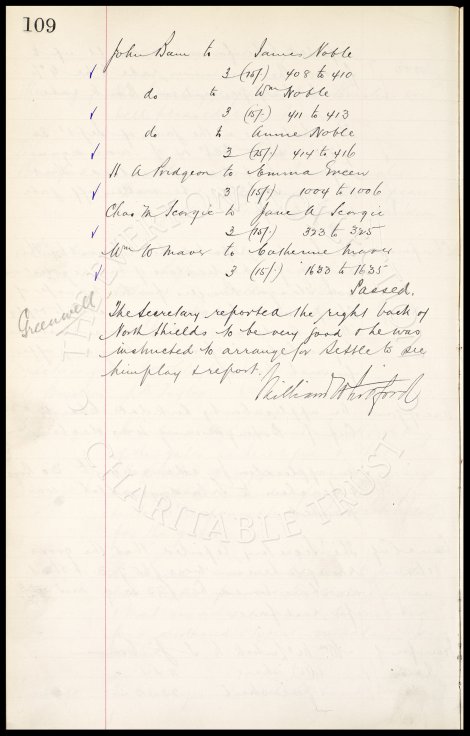 109
John Bain to James Noble
3 (15/-) 408 to 410
do to Wm Noble
3 (15/-) 411 to 413
do to Annie Noble
3 (15/-) 414 to 416
H A Pridgeon to Emma Green
3 (15/-) 1004 to 1006
Chas M Scorgie to Jane A Scorgie
3 (15/-) 323 to 325
Wm W Maver to Catherine Maver
3 (15/-) 1633 to 1635
Passed.
Greenwell
The Secretary reported the right back of
North Shields to be very good & he was
instructed to arrange for Settle to see
him play & report.
William
CHARITABLE TRUST